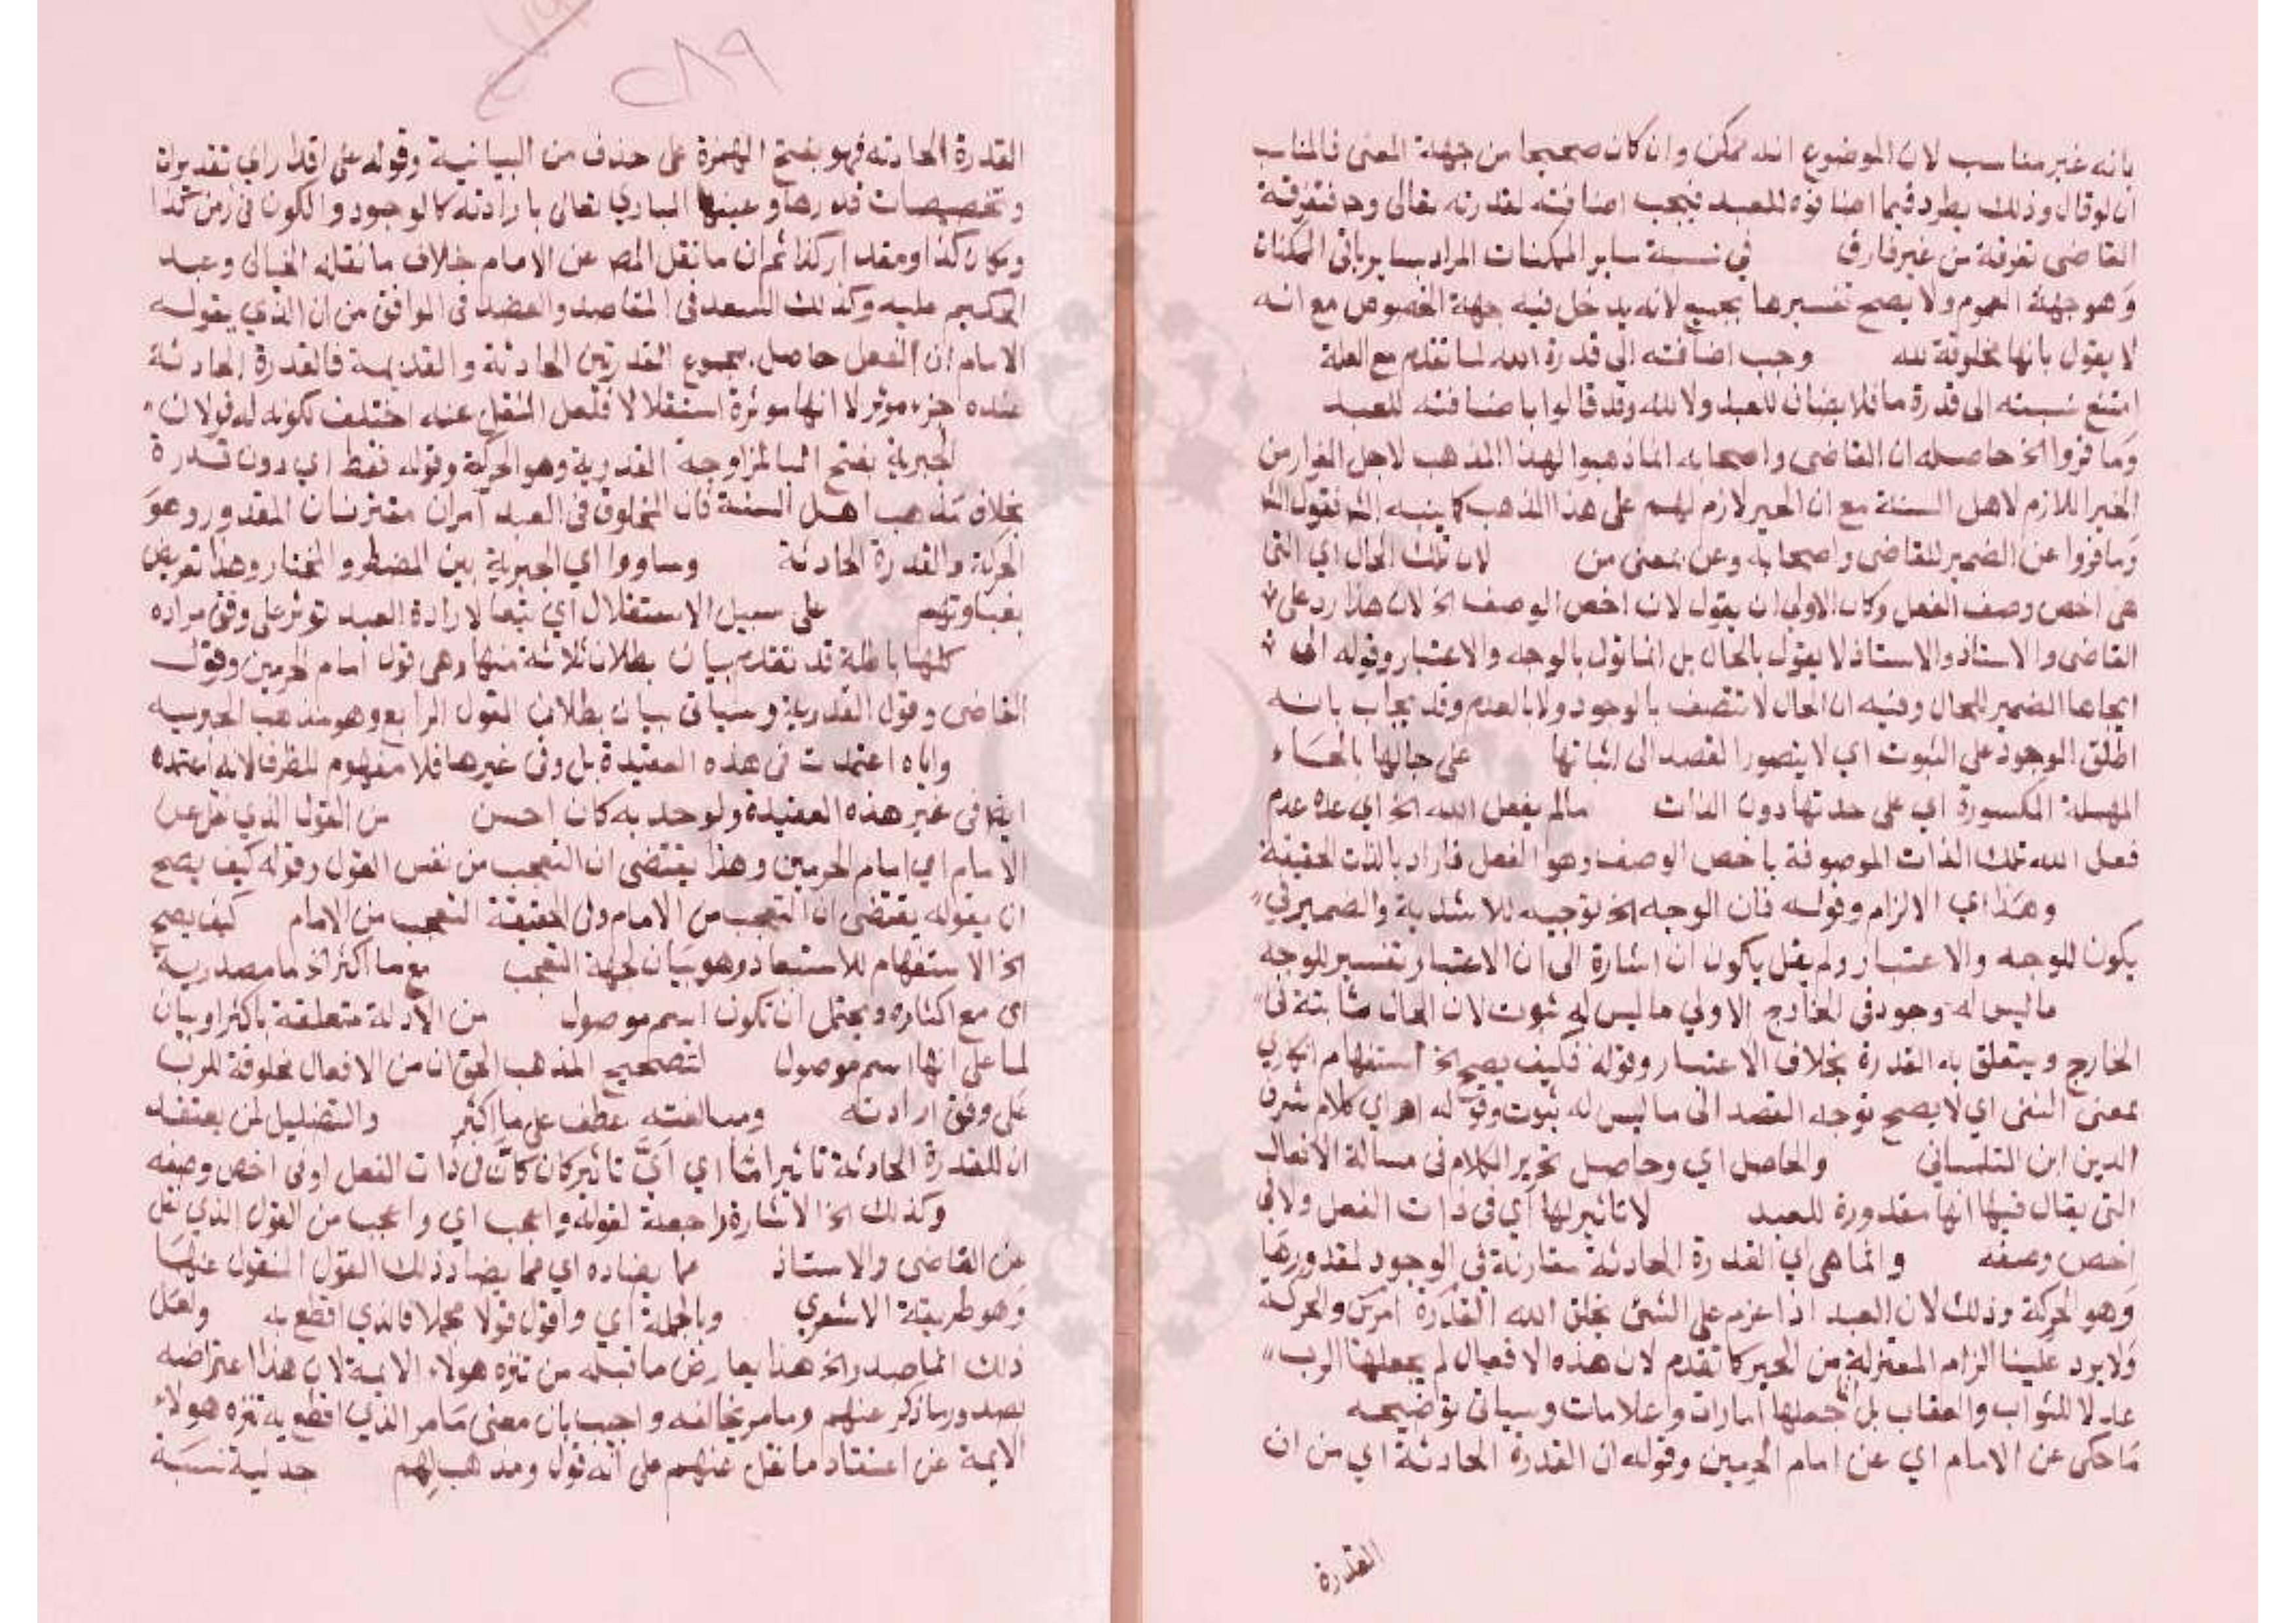 بانه غير مناسب لان الموضوع انه ممكن وان كان صحيحا من جهة المعنى فالمناسب
ان لو قال وذلك يطرد فيما اضافوه للعبد فيجب اضافته لقدرته تعالى وح فتفرقة
القاضى تفرقة من غير فارق في نسبة ساير الممكنات المراد بساير باقى الممكنات
وهو جهة العموم ولا يصح تفسيرها بجميع لانه يدخل فيه جهة الخصوص مع انه
لا يقول بانها مخلوقة لله وجب اضافته الى قدرة الله لما تقدم مع العلة
امتنع نسبته الى قدرة ما فلا يضاف للعبد ولا لله وقد قالوا باضافته للعبد
وما فروا الخ حاصله ان القاضى واصحابه انما ذهبوا لهذا المذهب لاجل الفرار من
الجبر اللازم لاهل السنة مع ان الجبر لازم لهم على هذا المذهب كما ينبه
وما فروا عن الضمير للقاضى واصحابه وعن بمعنى من لان تلك الحال اي التى
هى اخص وصف الفعل وكان الاولى ان يقول لان اخص الوصف الخ لان هذا رد على
القاضى والاستاذ والاستاذ لا يقول بالحال بل انما يقول بالوجه والاعتبار وقوله الى
ايجادها الضمير للحال وفيه ان الحال لا تتصف بالوجود ولا بالعدم وقد يجاب بانه
اطلق الوجود على الثبوت اي لا يتصور القصد الى اثباتها على حيالها بالحاء
المهملة المكسورة اي على حدتها دون الذات مالم يفعل الله الخ اي عدم
فعل الله تلك الذات الموصوفة باخص الوصف وهو الفعل فاراد بالذات الحقيقة
وهذا اي الالزام وقوله فان الوجه الخ توجيه للاشدية والضمير في
يكون للوجه والاعتبار ولم يقل يكون ان اشارة الى ان الاعتبار تفسير للوجه
ما ليس له وجود فى الخارج الاولى ما ليس له ثبوت لان الحال ثابتة فى
الخارج ويتعلق به القدرة بخلاف الاعتبار وقوله فكيف يصح الخ استفهام انكاري
بمعنى النفى اي لا يصح توجه القصد الى ما ليس له ثبوت وقوله اهـ اي كلام شرف
الدين ابن التلمسانى والحاصل اي وحاصل تحرير الكلام فى مسالة الافعال
التى يقال فيها انها مقدورة للعبد لا تاثير لها اي فى ذات الفعل ولا فى
اخص وصفه وانما هى اي القدرة الحادثة مقارنة فى الوجود لمقدورها
وهو الحركة وذلك لان العبد اذا عزم على الشئ يخلق الله القدرة والحركة
ولا يرد علينا الزام المعتزلة من الجبر كما تقدم لان هذه الافعال لم يجعلها الرب
عللا للثواب والعقاب بل جعلها امارات وعلامات وسياتى توضيحه
ما حكى عن الامام اي عن امام الحرمين وقوله ان القدرة الحادثة اي من ان
القدرة
٢٨٩
القدرة الحادثة فهو بفتح الهمزة على حذف من البيانية وقوله على اقدار اي تقديرات
وتخصيصات قدرها وعينها البارى تعالى بارادته كالوجود والكون فى زمن كذا
ومكان كذا ومقدار كذا ثم ان ما نقل المص عن الامام خلاف ما نقله الخيالى وعبد
الحكيم عليه وكذلك السعد فى المقاصد والعضد فى المواقف من ان الذي يقوله
الامام ان الفعل حاصل بمجموع القدرتين الحادثة والقديمة فالقدرة الحادثة
عنده جزء موثر لا انها موثرة استقلالا فلعل النقل عنه اختلف لكونه له قولان
الجبرية بفتح البا لمزاوجة القدرية وهو الحركة وقوله فقط اي دون قدرة
بخلاف مذهب اهل السنة فان المخلوق فى العبد امران مقترنان المقدور وهو
الحركة والقدرة الحادثة وساووا اي الجبرية بين المضطر والمختار وهذا تعريض
بغباوتهم على سبيل الاستقلال اي تبعا لارادة العبد توثر على وفق مراده
كلها باطلة قد تقدم بيان بطلان ثلاثة منها وهى قول امام الحرمين وقول
القاضى وقول القدرية وسياتى بيان بطلان القول الرابع وهو مذهب الجبرية
واياه اعتمدت فى هذه العقيدة بل وفى غيرها فلا مفهوم للظرف لانه اعتمده
ايضا فى غير هذه العقيدة ولو حذف به كان احسن من القول الذي نقل عن
الامام اي امام الحرمين وهذا يقتضى ان التعجب من نفس القول وقوله كيف يصح
ان يقوله يقتضى ان التعجب من الامام وفى الحقيقة التعجب من الامام كيف يصح
الخ الاستفهام للاستبعاد وهو بيان لجهة التعجب مع ما اكثر الخ ما مصدرية
اى مع اكثاره ويحتمل ان تكون اسم موصول من الادلة متعلقة باكثر او بيان
لما على انها اسم موصول لتصحيح المذهب الحق ان من الافعال مخلوقة للرب
على وفق ارادته ومبالغته عطف على ما اكثر والتضليل لمن يعتقد
ان للقدرة الحادثة تاثيرا ما اي اىّ تاثير كان كان فى ذات الفعل او فى اخص وصفه
وكذلك الخ الاشارة راجعة لقوله واعجب اي واعجب من القول الذي نقل
عن القاضى والاستاذ مما يضاده اي مما يضاد ذلك القول المنقول عنهما
وهو طريقة الاشعري وبالجملة اي واقول قولا مجملا فالذي اقطع به ولعل
ذلك انما صدر الخ هذا يعارض ما قبله من تنزه هولاء الايمة لان هذا اعتراضه
بصدور ما ذكر عنهم وما مر يخالفه واجيب بان معنى ما مر الذي اقطع به تنزه هولاء
الايمة عن اعتقاد ما نقل عنهم على انه قول ومذهب لهم جدلية نسبة